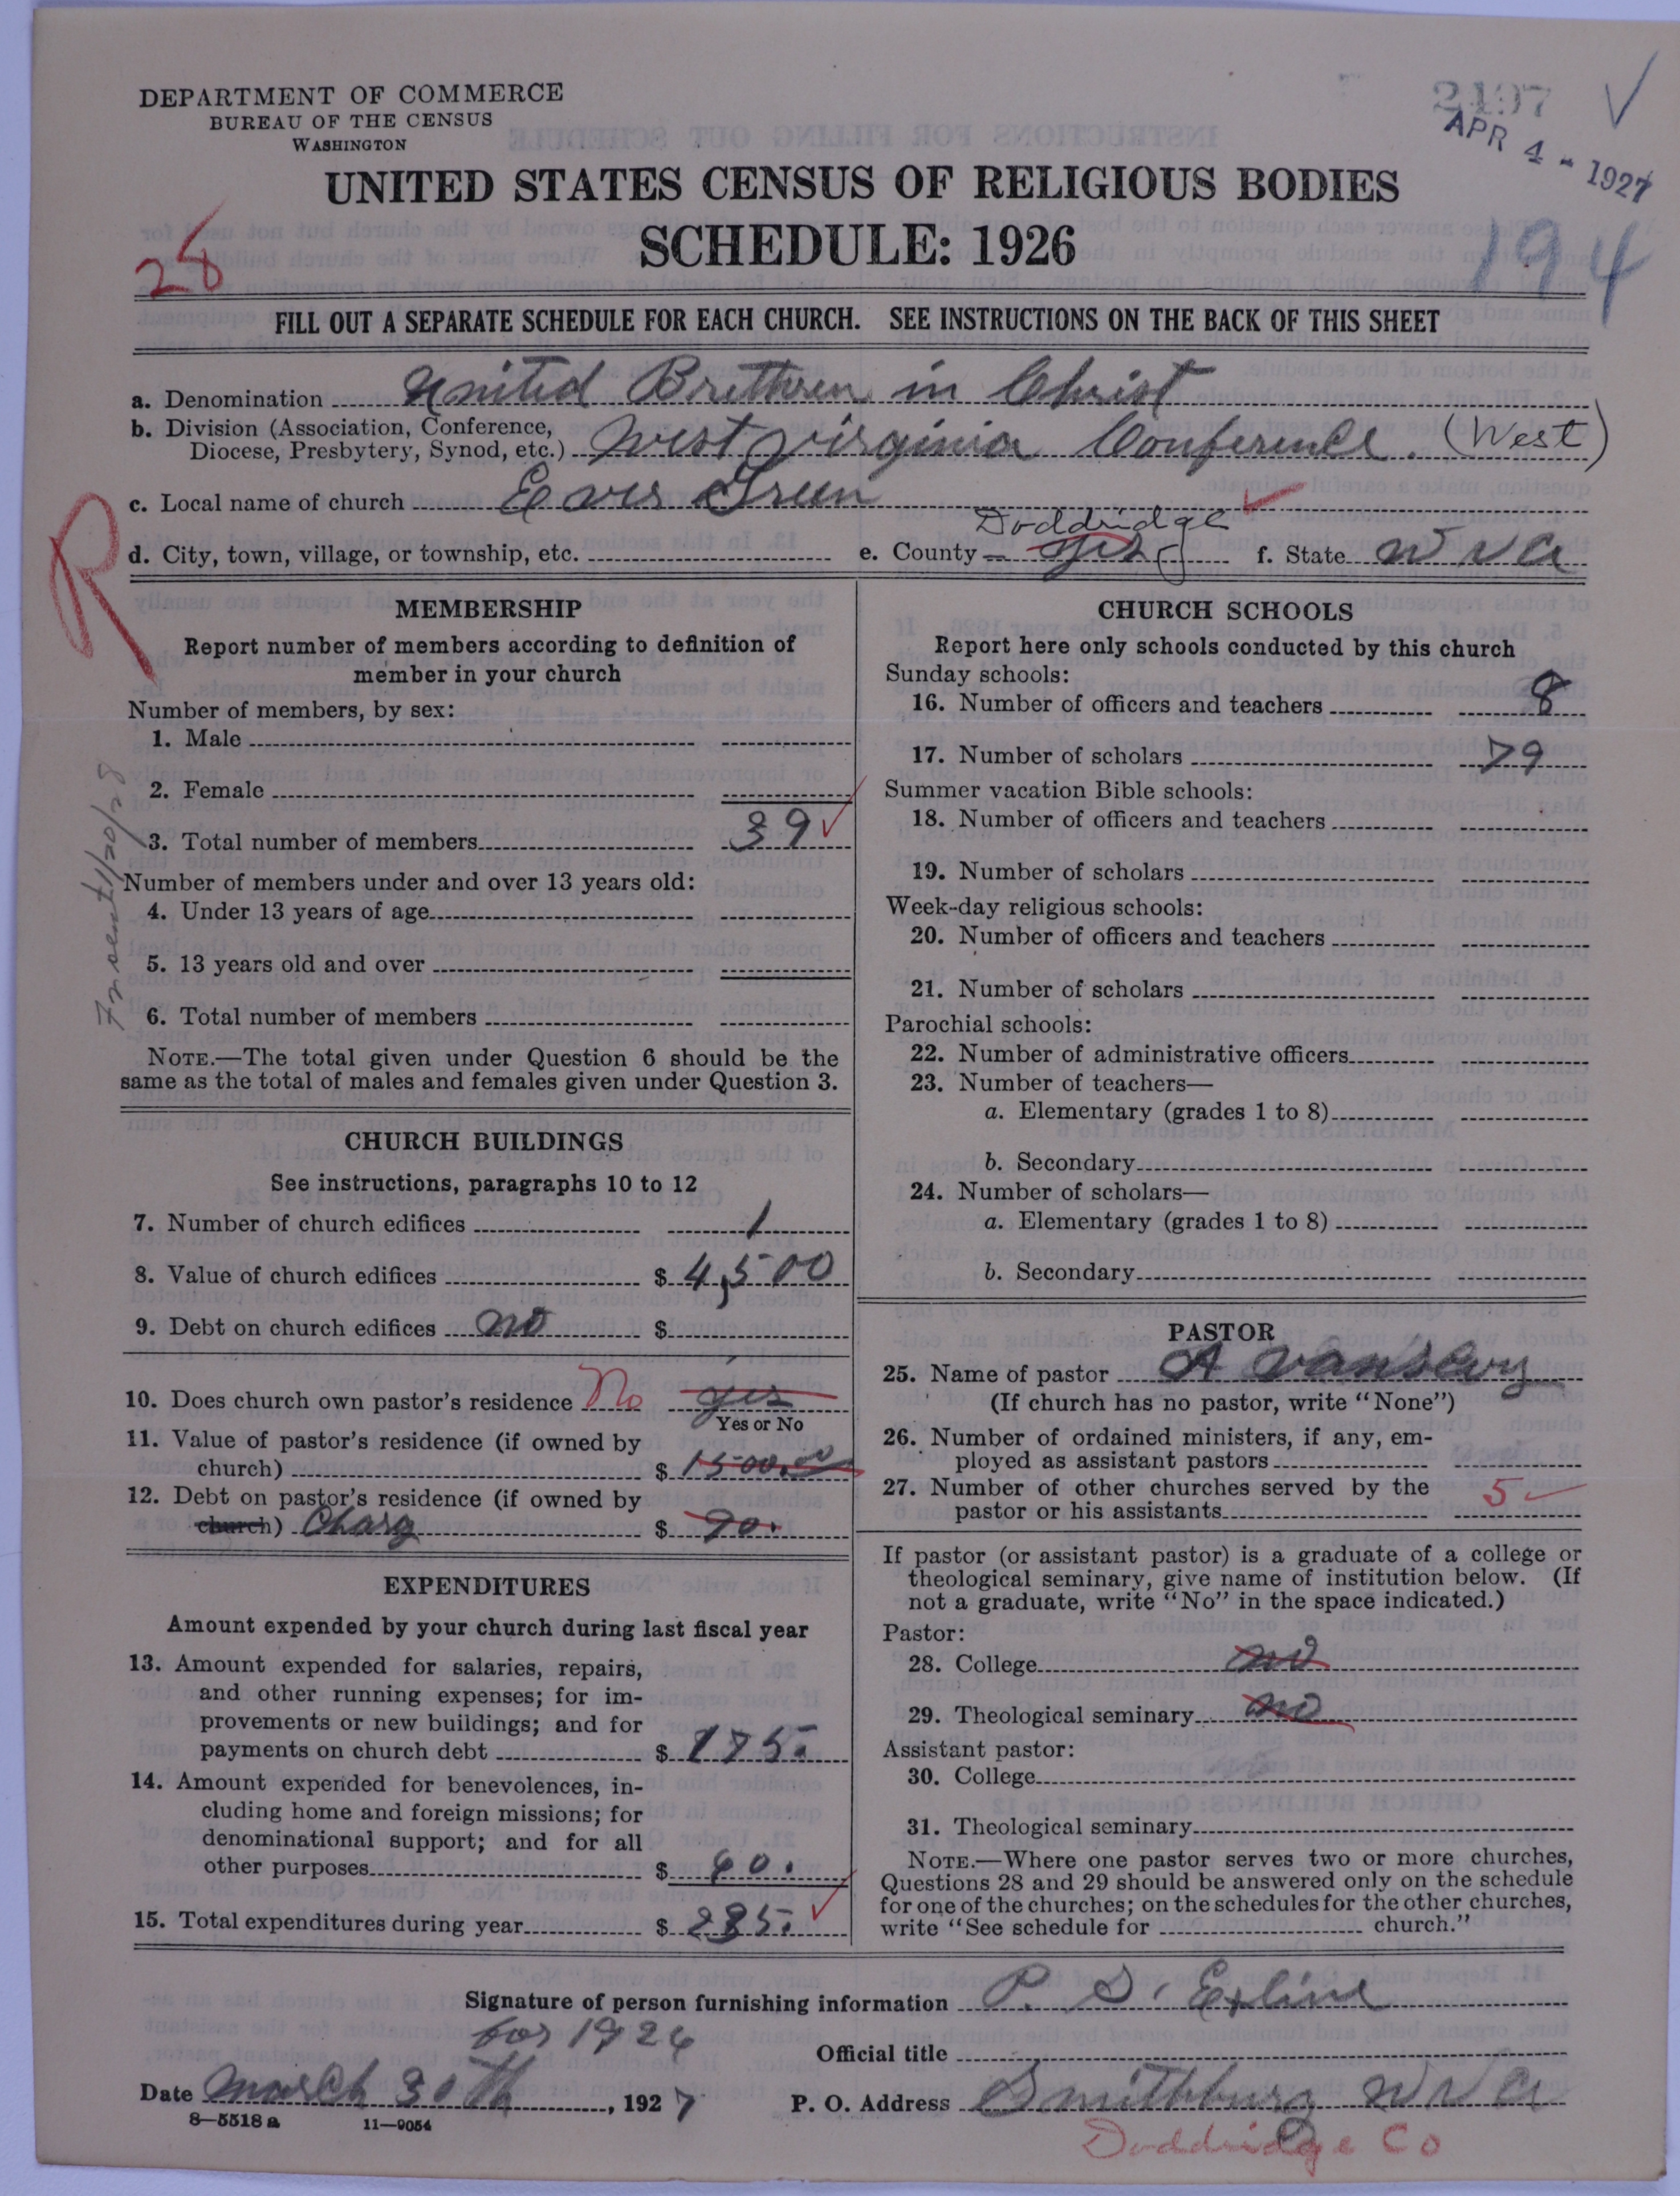 DEPARTMENT OF COMMERCE
BUREAU OF THE CENSUS
WASHINGTON
2197
APR 4 - 1927
UNITED STATES CENSUS OF RELIGIOUS BODIES
SCHEDULE: 1926
28
194
FILL OUT A SEPARATE SCHEDULE FOR EACH CHURCH. SEE INSTRUCTIONS ON THE BACK OF THIS SHEET
a. Denomination United Brethren in Christ
b. Division (Association, Conference,
Diocese, Presbytery, Synod, etc.) West Virginia Conference. (West)
c. Local name of church Ever Green
R
d. City, town, village, or township, etc. e. County Doddridge f. State W Va
MEMBERSHIP
Report number of members according to definition of
member in your church
Number of members, by sex:
1. Male
2. Female
3. Total number of members 39
Number of members under and over 13 years old:
4. Under 13 years of age
5. 13 years old and over
6. Total number of members
NOTE.—The total given under Question 6 should be the
same as the total of males and females given under Question 3.
sent 1/20/28
CHURCH BUILDINGS
See instructions, paragraphs 10 to 12
7. Number of church edifices 1
8. Value of church edifices $ 4,500
9. Debt on church edifices no $
10. Does church own pastor's residence No yes
Yes or No
11. Value of pastor's residence (if owned by
church) $ 1500.00
12. Debt on pastor's residence (if owned by
church) Charg $ 90.
EXPENDITURES
Amount expended by your church during last fiscal year
13. Amount expended for salaries, repairs,
and other running expenses; for im-
provements or new buildings; and for
payments on church debt $ 175.
14. Amount expended for benevolences, in-
cluding home and foreign missions; for
denominational support; and for all
other purposes $ 60.
15. Total expenditures during year $ 235.
CHURCH SCHOOLS
Report here only schools conducted by this church
Sunday schools:
16. Number of officers and teachers 8
17. Number of scholars 79
Summer vacation Bible schools:
18. Number of officers and teachers
19. Number of scholars
Week-day religious schools:
20. Number of officers and teachers
21. Number of scholars
Parochial schools:
22. Number of administrative officers
23. Number of teachers—
a. Elementary (grades 1 to 8)
b. Secondary
24. Number of scholars—
a. Elementary (grades 1 to 8)
b. Secondary
PASTOR
25. Name of pastor A Vanscoy
(If church has no pastor, write "None")
26. Number of ordained ministers, if any, em-
ployed as assistant pastors
27. Number of other churches served by the
pastor or his assistants 5
If pastor (or assistant pastor) is a graduate of a college or
theological seminary, give name of institution below. (If
not a graduate, write "No" in the space indicated.)
Pastor:
28. College no
29. Theological seminary no
Assistant pastor:
30. College
31. Theological seminary
NOTE.—Where one pastor serves two or more churches,
Questions 28 and 29 should be answered only on the schedule
for one of the churches; on the schedules for the other churches,
write "See schedule for church."
Signature of person furnishing information P. S. Exline
for 1926
Official title
Date March 30th, 1927 P. O. Address Smithburg W Va
8-5518a 11-9054
Doddridge Co